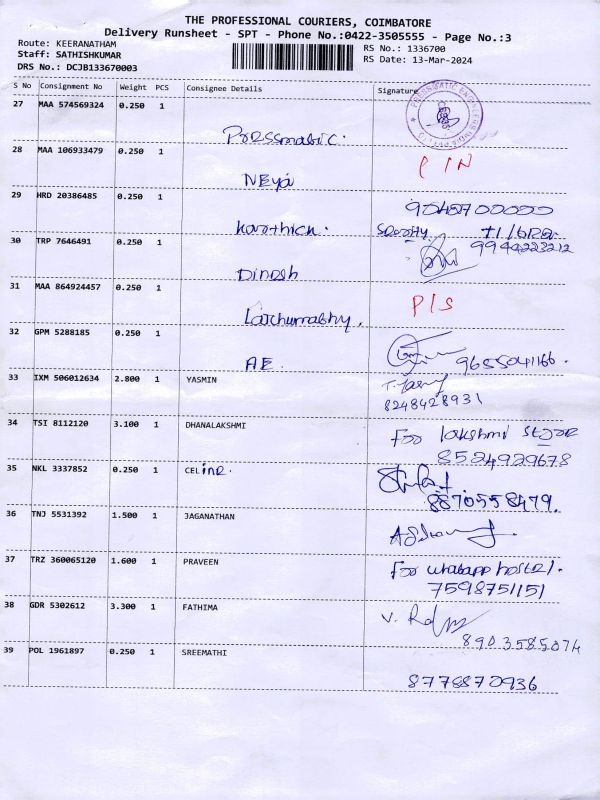 THE PROFESSIONAL COURIERS, COIMBATORE
Delivery Runsheet - SPT - Phone No.:0422-3505555 - Page No.:3
Route: KEERANATHAM
RS No.: 1336700
Staff: SATHISHKUMAR
RS Date: 13-Mar-2024
DRS No.: DCJB133670003
S No Consignment No Weight PCS Consignee Details Signature
27 MAA 574569324 0.250 1
Pressmatic.
28 MAA 106933479 0.250 1
P/N
Neya
29 HRD 20386485 0.250 1
Karthick.
30 TRP 7646491 0.250 1
9944223212
Dinesh
31 MAA 864924457 0.250 1
P/S
32 GPM 5288185 0.250 1
AE.
9655041166.
33 IXM 506012634 2.800 1 YASMIN
8248428931
34 TSI 8112120 3.100 1 DHANALAKSHMI
For lakshmi store
8524929678
35 NKL 3337852 0.250 1 CELINE.
8870558479.
36 TNJ 5531392 1.500 1 JAGANATHAN
37 TRZ 360065120 1.600 1 PRAVEEN
For whatsapp hostel.
7598751151
38 GDR 5302612 3.300 1 FATHIMA
8903585074
39 POL 1961897 0.250 1 SREEMATHI
8778870936